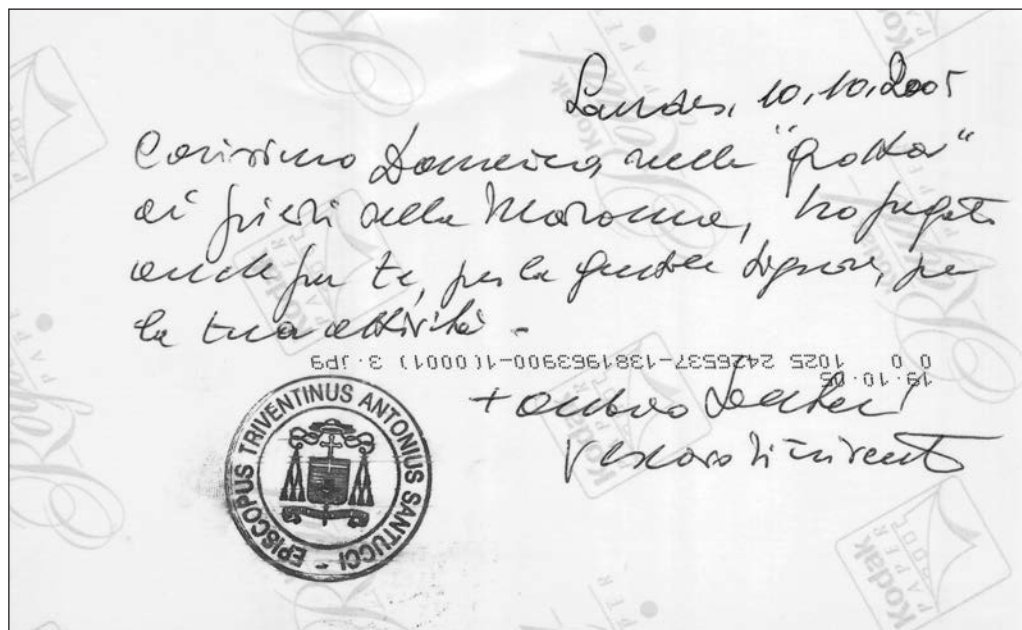 Lourdes, 10.10.2005
Carissimo Domenico, nella "Grotta"
ai piedi della Madonna, ho pregato
anche per te, per la gentile Signora, per
la tua attività -
0 0 1025 2426537-1381963900-1(0001) 3.JP9
19.10.05
+ Antonio Santucci
Vescovo di Trivento
EPISCOPUS TRIVENTINUS ANTONIUS SANTUCCI -
Kodak
PAPER
Royal